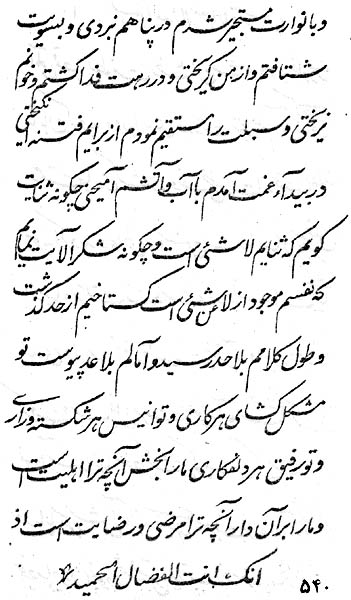 و بانوارت مستجیر شدم در پناهم نبردی و بسویت
شتافتم و از من گریختی و در رهت فدا گشتم و خونم
نریختی و سبلت را مستقیم نمودم از برایم فتنه انگیختی
در بیدآء غمت آمدم با آب و آتشم آمیختی چگونه ثنایت
گویم که ثنایم لاشئی است و چگونه شکر الآیت نمایم
که نفسم موجود از لا عن شئی است گستاخیم از حد گذشت
و طول کلامم بلا حد رسید و آمالم بلا عد پیوست تو
مشکل گشای هر کاری و تو انیس هر شکسته و زاری
و تو رفیق هر دلفکاری ما را بخش آنچه ترا اهلیت است
و ما را بر آن دار آنچه ترا مرضی و رضایت است اذ
انک انت الفضال الحمید
۵۴۰